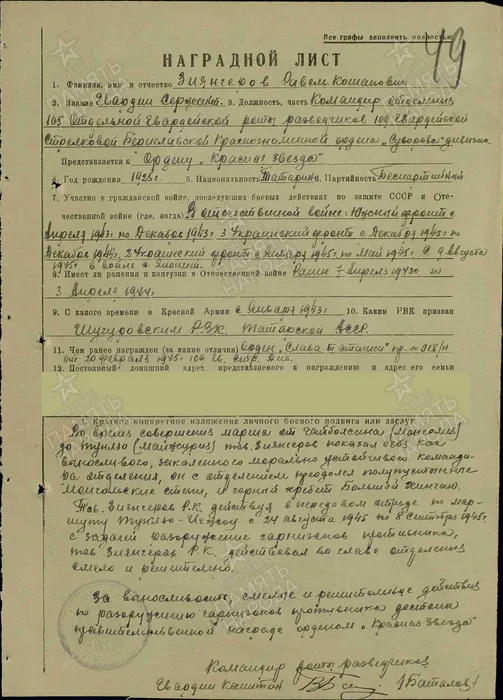 Все графы заполнять полностью
49
НАГРАДНОЙ ЛИСТ
1. Фамилия, имя и отчество Зиянгеров Равель Кошапович
2. Звание Гвардии Сержант. 3. Должность, часть Командир отделения
105 Отдельной Гвардейской роты разведчиков 109 Гвардейской
Стрелковой Бериславской Краснознаменной ордена „Суворова" дивизии.
Представляется к Ордену „Красная Звезда"
4. Год рождения 1925г. 5. Национальность Татарин 6. Партийность Беспартийный
7. Участие в гражданской войне, последующих боевых действиях по защите СССР и Оте-
чественной войне (где, когда) В отечественной войне: Южный фронт с
Апреля 1943г по Декабрь 1943г. 3 Украинский фронт с Декабря 1943г по
Декабрь 1944г. 2 Украинский фронт с Января 1945г по Май 1945г. С 9 Августа
1945г. в войне с Японией.
8. Имеет ли ранения и контузии в Отечественной войне Ранен 7 Апреля 1943г и
3 Апреля 1944г.
9. С какого времени в Красной Армии с Января 1943г. 10. Каким РВК призван
РВК. Татарской АССР.
11. Чем ранее награжден (за какие отличия) Орден „Слава степени" пр. № 018/н
от 20 февраля 1945г 109 Гв. стр. Див.
12. Постоянный домашний адрес представляемого к награждению и адрес его семьи
1. Краткое конкретное изложение личного боевого подвига или заслуг
Во время совершения марша от (Монголия)
до (Манжурия) тов. Зиянгеров показал себя как
выносливого, закаленного морально устойчивого команди-
ра отделения, он с отделением преодолел полупустынные
Монгольские степи, и горный хребет Большой Хинган.
Тов. Зиянгеров Р.К. действуя в передовом отряде по мар-
шруту с 24 августа 1945 по 8 сентября 1945г.
с задачей разоружение гарнизонов противника,
тов Зиянгеров Р.К. действовал во главе отделения
смело и решительно.
За выносливость, смелые и решительные действия
по разоружению гарнизонов противника достоин
правительственной награде орденом „Красная Звезда"
Командир роты разведчиков
Гвардии Капитан /Баталов/
ПАМЯТЬ НАРОДА